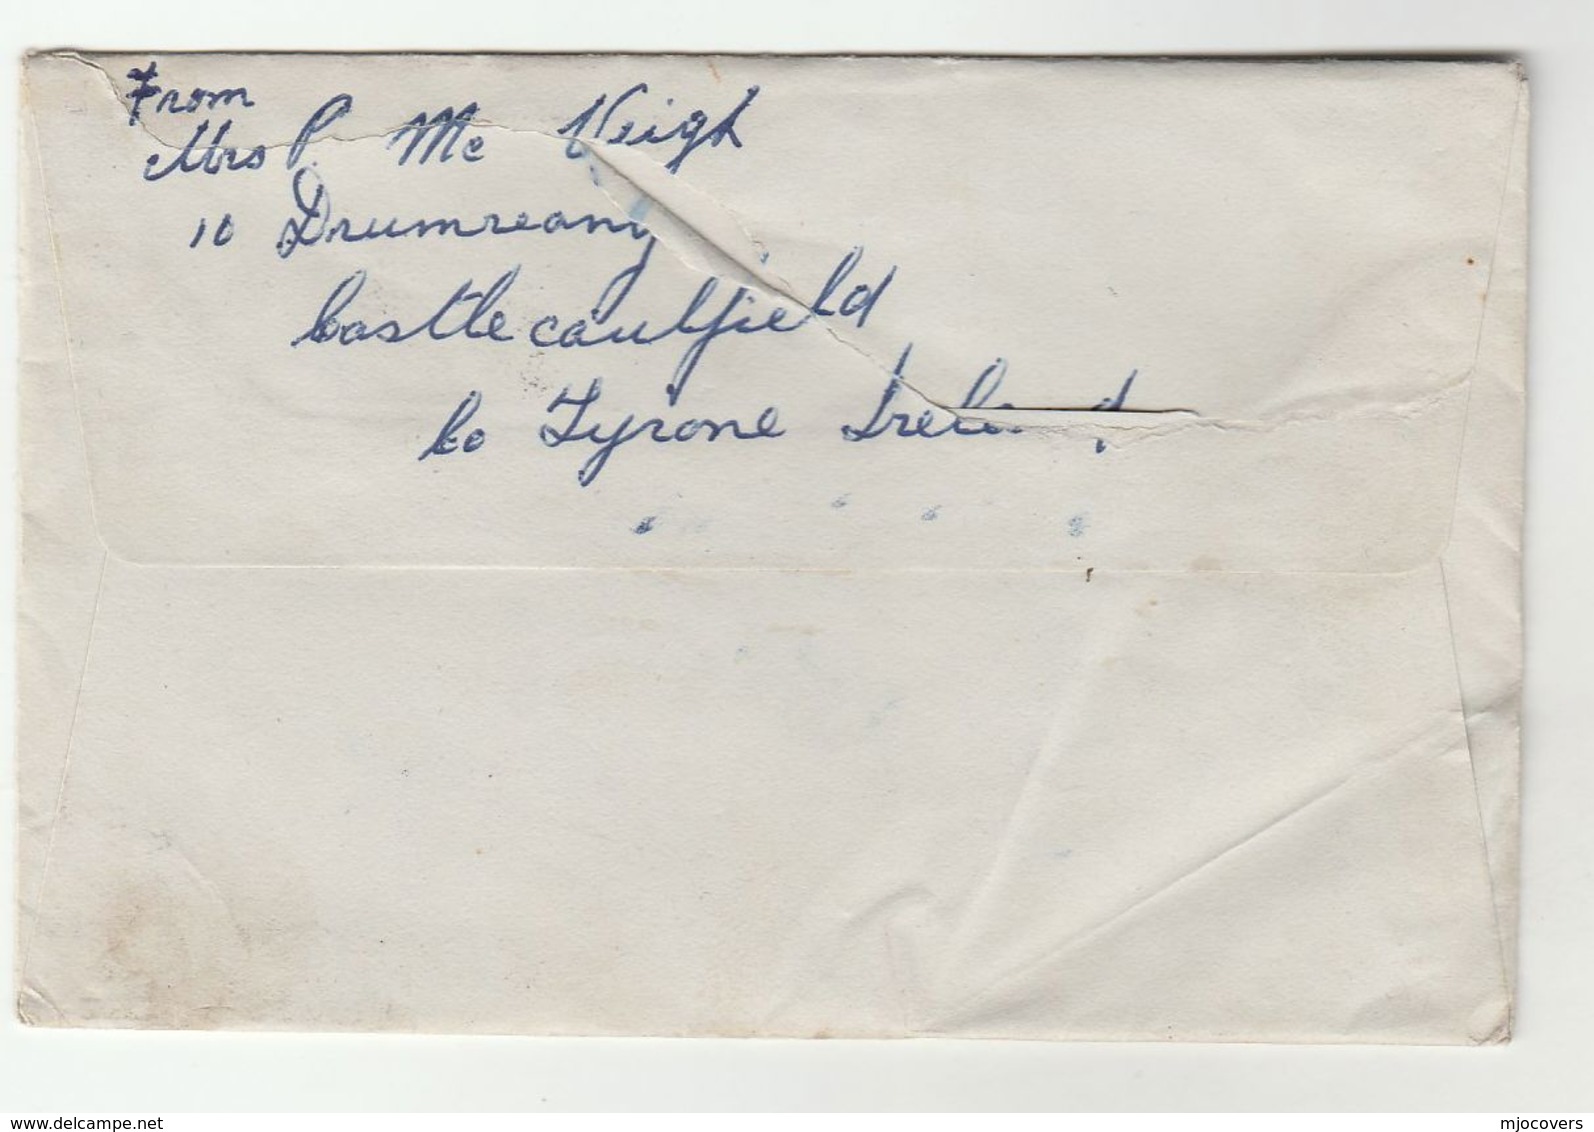 From
Mrs P. Mc Veigh
10 Drumreany
Castlecaulfield
Co Tyrone Ireland
www.delcampe.net
mjocovers